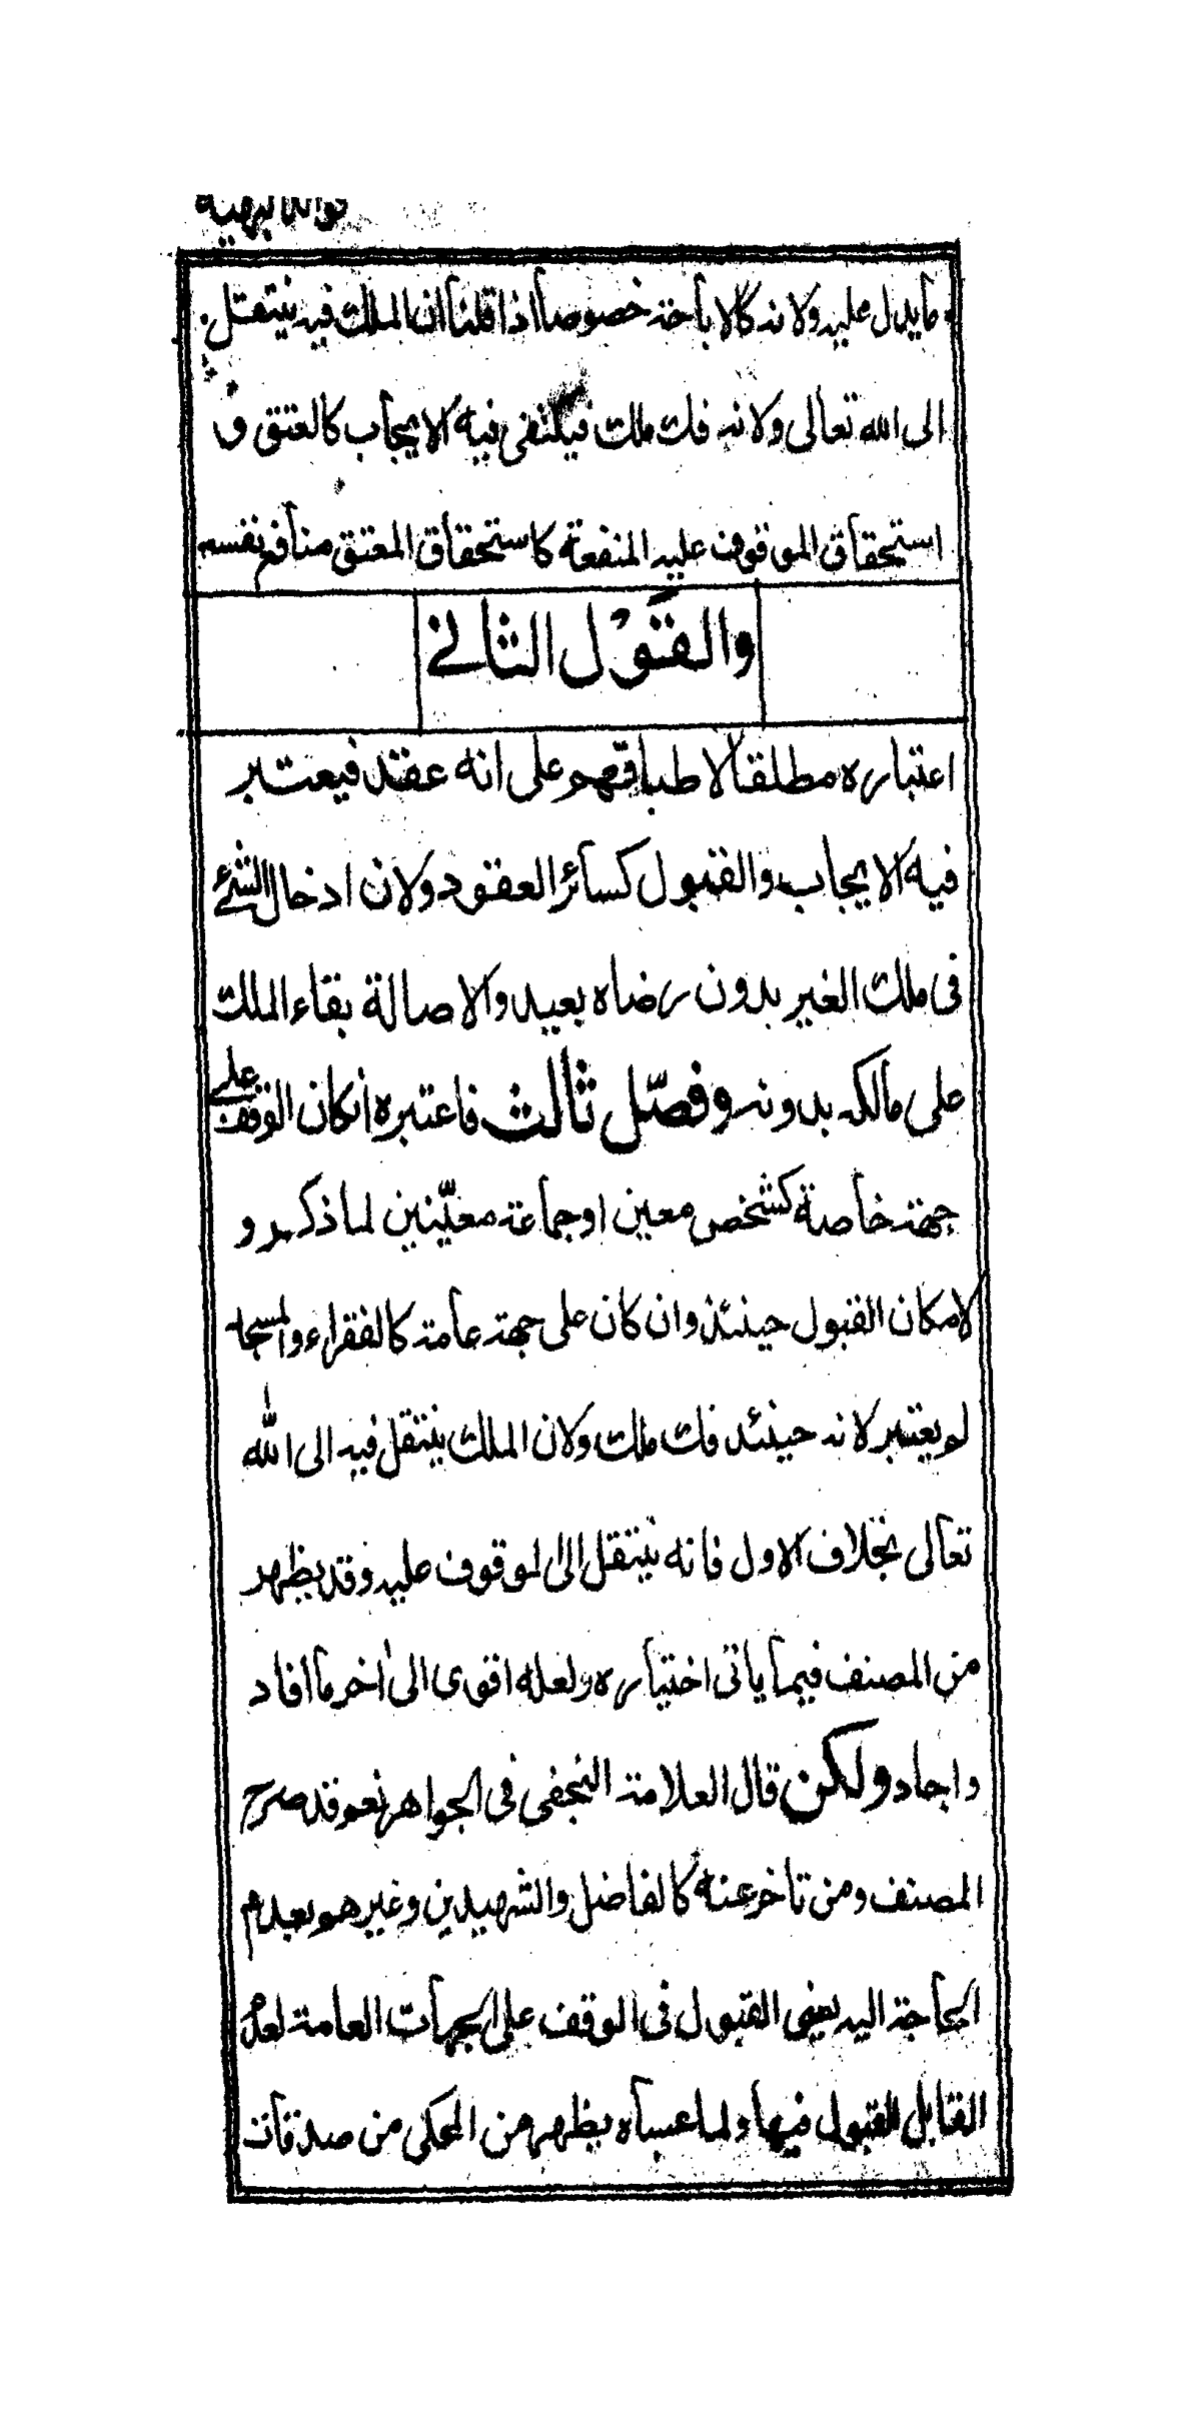 ما يدل عليه ولانه كالاباحة خصوصا اذا قلنا ان الملك فيه ينتقل
الى الله تعالى ولانه فك ملك فيكتفى فيه الايجاب كالعتق و
استحقاق الموقوف عليه المنفعة كاستحقاق المعتق منافع نفسه
والقول الثاني
اعتباره مطلقا لاطباقهم على انه عقد فيعتبر
فيه الايجاب والقبول كسائر العقود ولان ادخال الشئ
فى ملك الغير بدون رضاه بعيد والاصالة بقاء الملك
على مالكه بدونه وفصّل ثالث فاعتبره انكان الوقف على
جهة خاصة كشخص معين او جماعة معيّنين لما ذكر و
لامكان القبول حينئذ وان كان على جهة عامة كالفقراء والمسجد
لم يعتبر لانه حينئذ فك ملك ولان الملك ينتقل فيه الى الله
تعالى بخلاف الاول فانه ينتقل الى الموقوف عليه وقد يظهر
من المصنف فيما ياتى اختياره ولعله اقوى الى اخر ما افاد
واجاد ولكن قال العلامة النجفى فى الجواهر نعم قد صرح
المصنف ومن تاخر عنه كالفاضل والشهيدين وغيرهم بعدم
الحاجة اليه يعنى القبول فى الوقف على الجهات العامة لعدم
القابل للقبول فيها ولما عساه يظهر من المحكى من صدقات